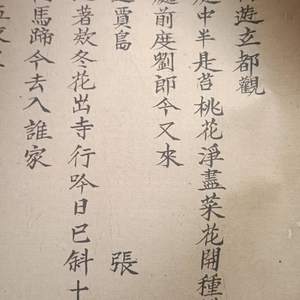 遊玄都觀
中半是苔桃花淨盡菜花開種
前度劉郎今又來
賈島 張
著冬花出寺行吟日已斜十
馬蹄今去入誰家